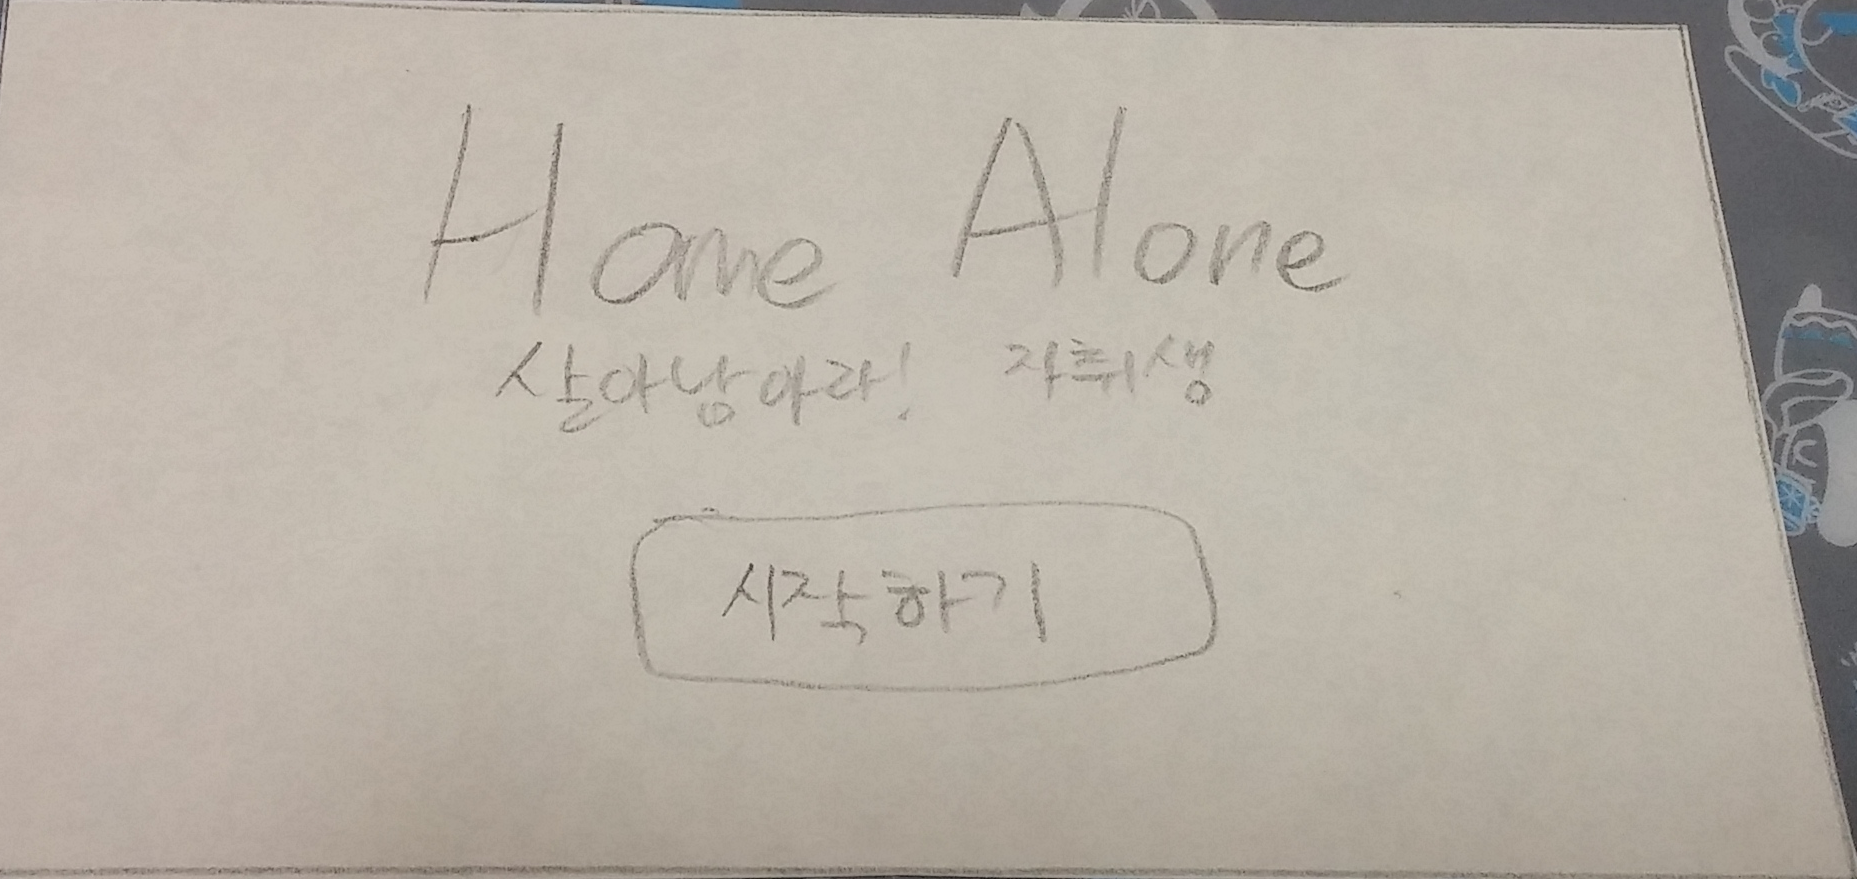 Home Alone
살아남아라! 자취생
시작하기